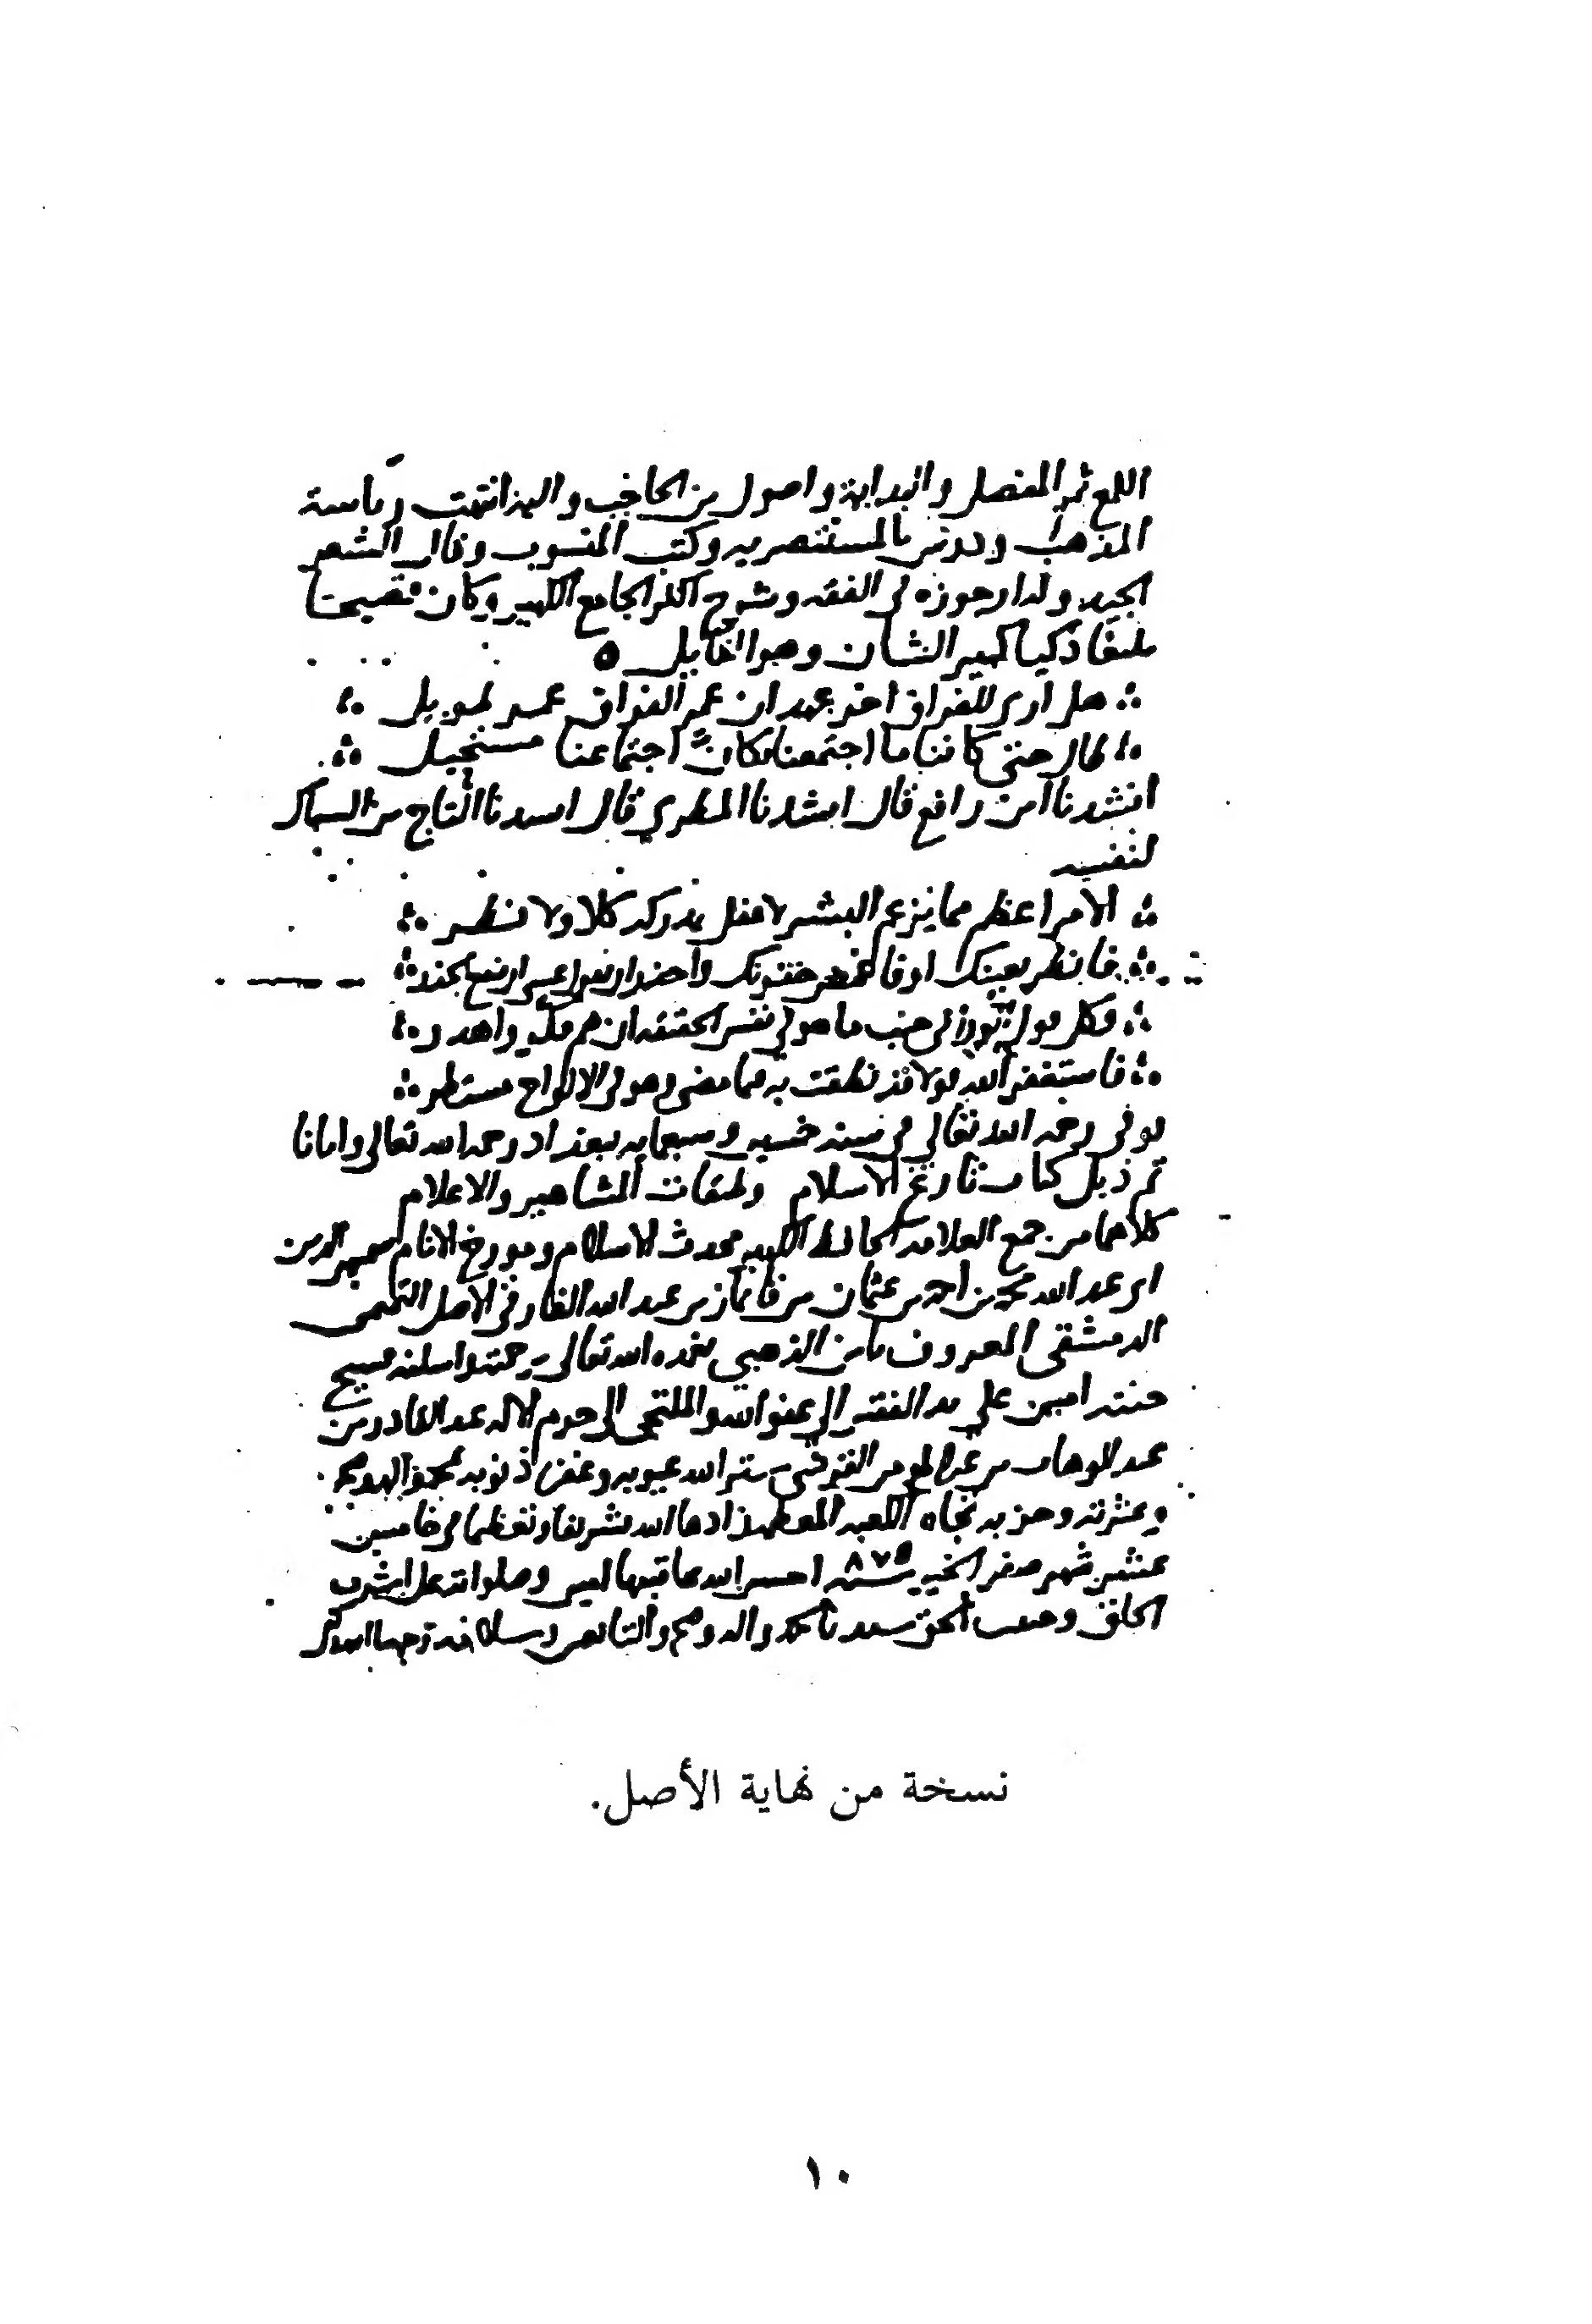 اللمع ثم المفصل والبداية واصول بن الحاجب واليه انتهت رياسة
المذهب ودرس بالمستنصريه وكتب المنسوب وقال الشعر
الجيد وله ارجوزه في الفقه وشرح اكثر الجامع الكبير وكان فصيحا
بليغا ذكيا كبير الشان وهو القايل
هل ارى للفراق اخر عهد ان عمر الفراق عمر طويل
طال حتى كاننا ما اجتمعنا فكان اجتماعنا مستحيل
انشدنا ابن رافع قال انشدنا المطري قال انشدنا التاج بن السباك
لنفسه
الامر اعظم مما يزعم البشر لا عقل يدركه كلا ولا نظر
فانظر بعينك او فاغمض جفونك واحذر ان تقول عسى ان ينفع الحذر
فكل قول الورى في جنب ما هو في نفس الحقيقه ان هم فكروا هدر
فاستغفر الله قولا قد نطقت به فيما مضى وهو في الالواح مستطر
توفي رحمه الله تعالى في سنه خمسين وسبعمايه ببغداد رحمه الله تعالى وايانا
تم ذيل كتاب تاريخ الاسلام وطبقات المشاهير والاعلام
كلاهما من جمع العلامه الحافظ الكبير محدث الاسلام ومورخ الانام شمس الدين
ابي عبد الله محمد بن احمد بن عثمان بن قايماز بن عبد الله الفارقي الاصل
الدمشقي المعروف بابن الذهبي تغمده الله تعالى برحمته واسكنه فسيح
جنته امين على يد الفقير الى عفو الله والملتجي الى حرم الاله عبد القادر بن
عبد الوهاب بن عبد المومن القرشي ستر الله عيوبه وغفر ذنوبه بمحمد واله وصحبه
وعترته وحزبه تجاه الكعبه المعظمه زادها الله تشريفا وتعظيما في خامس
عشر شهر صفر الخير سنه ٨٧٥ احسن الله عاقبتها امين وصلواته على اشرف
الخلق وحبيب الحق سيدنا محمد واله وصحبه والتابعين وسلامه
نسخة من نهاية الأصل.
١٠